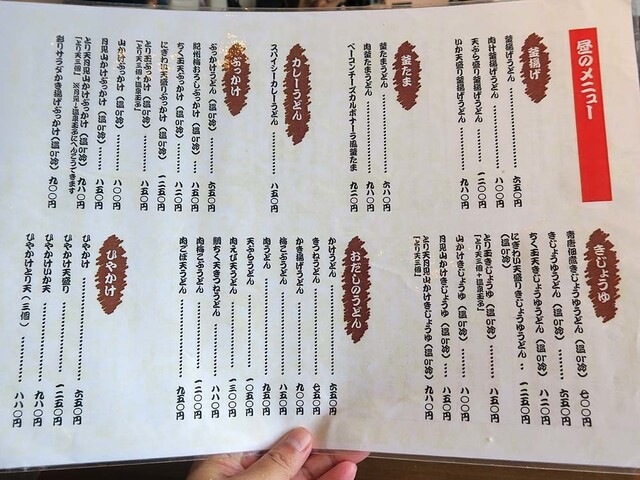 昼のメニュー
釜揚げ
釜揚げうどん 六五〇円
肉汁釜揚げうどん 九五〇円
天ぷら盛り釜揚げうどん 一二〇〇円
いか天盛り釜揚げうどん 九八〇円
釜たま
釜たまうどん 六八〇円
肉釜たまうどん 九八〇円
ベーコンチーズカルボナーラ風釜たま 九二〇円
カレーうどん
スパイシーカレーうどん 八五〇円
ぶっかけ
ぶっかけうどん(温or冷) 六五〇円
紀州梅おろしぶっかけ(温or冷) 八五〇円
ちく玉天ぶっかけ(温or冷) 八二〇円
にぎわい天盛りぶっかけ(温or冷) 一二五〇円
とり玉ぶっかけ(温or冷) 八五〇円
「とり天三個+温泉玉子」
山かけぶっかけ(温or冷) 八〇〇円
月見山かけぶっかけ(温or冷) 八五〇円
とり天月見山かけぶっかけ(温or冷) 九八〇円
「とり天三個」※月見→温泉玉子にへんこうできます
彩りサラダかき揚げぶっかけ(温or冷) 九〇〇円
きじょうゆ
青唐佃煮きじょうゆうどん(温or冷) 七〇〇円
きじょうゆうどん(温or冷) 六五〇円
ちく玉天きじょうゆうどん(温or冷) 八二〇円
にぎわい天盛りきじょうゆうどん 一二五〇円
(温or冷)
とり玉きじょうゆ(温or冷) 八五〇円
「とり天三個+温泉玉子」
山かけきじょうゆ(温or冷) 八〇〇円
月見山かけきじょうゆ(温or冷) 八五〇円
とり天月見山かけきじょうゆ(温or冷) 九八〇円
「とり天三個」
おだしのうどん
かけうどん 六五〇円
きつねうどん 七五〇円
かき揚げうどん 九〇〇円
梅こぶうどん 八五〇円
肉うどん 九五〇円
天ぷらうどん 一〇五〇円
肉えび天うどん 一三〇〇円
鯛ちく天きつねうどん 八八〇円
肉梅こぶうどん 一二〇〇円
肉ごぼ天うどん 九五〇円
ひやかけ
ひやかけ 六五〇円
ひやかけ天盛り 一二五〇円
ひやかけいか天 九八〇円
ひやかけとり天(三個) 八八〇円